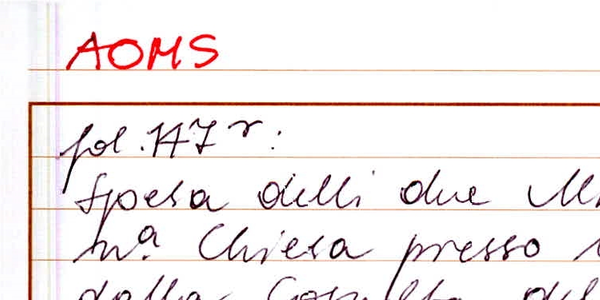 AOMS
fol. 147 r:
Spesa delli due
nra Chiesa presso
dalla